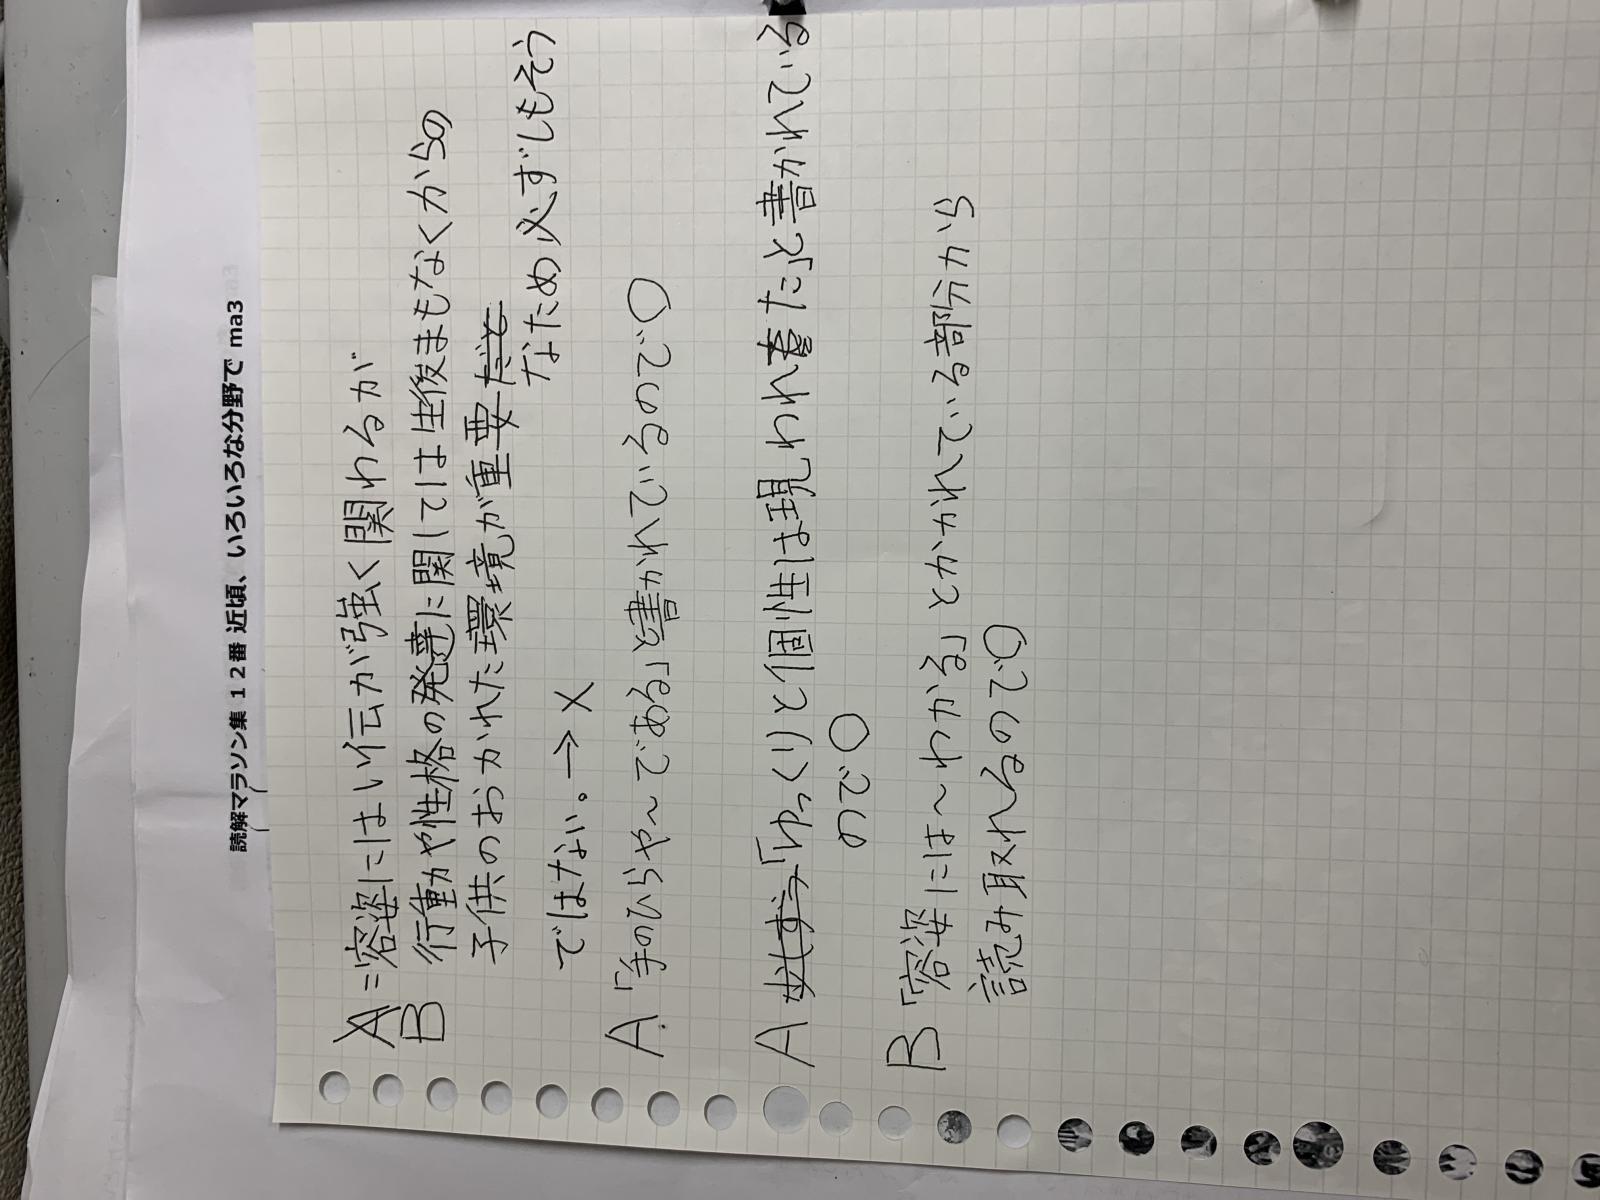 読解マラソン集 12番 近頃、いろいろな分野で ma3
A:容姿にはい伝が強く関わるが
B 行動や性格の発達に関しては生後まもなくからの
子供のおかれた環境が重要
なため必ずしもそう
ではない。→×
A.「手のひらや〜である」と書かれているので○
A 「ゆっくりと個性は現われた」と書かれている
ので○
B「容姿には〜わかる」とかかれている部分から
読み取れるので○